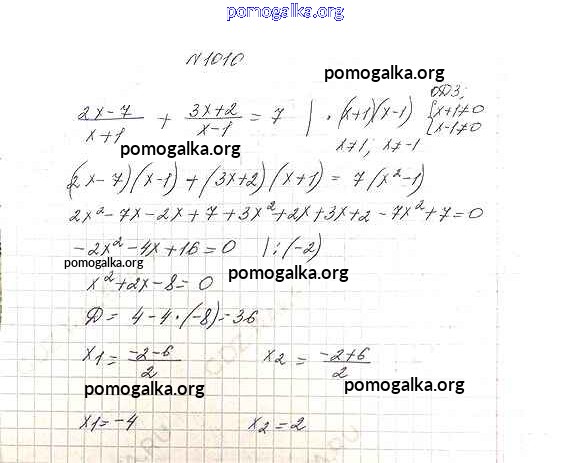 pomogalka.org
N1010
pomogalka.org
(2x-7)/(x+1) + (3x+2)/(x-1) = 7 | · (x+1)(x-1) ОДЗ: { x+1≠0
{ x-1≠0
x≠1; x≠-1
pomogalka.org
(2x-7)(x-1) + (3x+2)(x+1) = 7(x²-1)
2x²-7x-2x+7+3x²+2x+3x+2-7x²+7=0
-2x²-4x+16=0 | :(-2)
pomogalka.org
pomogalka.org
x²+2x-8=0
Д= 4-4·(-8)=36
x1= (-2-6)/2 x2= (-2+6)/2
pomogalka.org pomogalka.org
x1=-4 x2=2